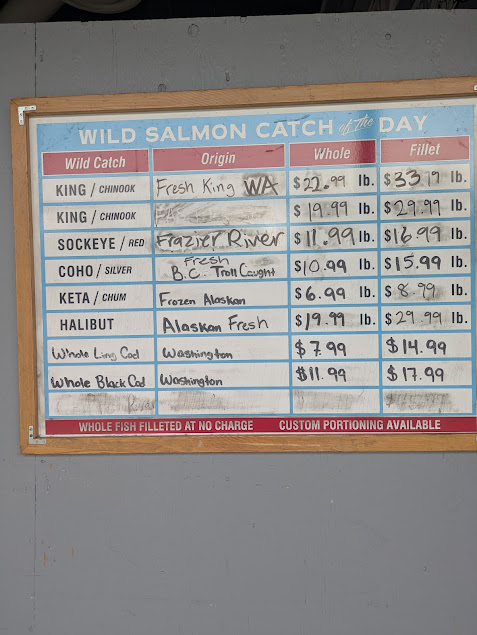 WILD SALMON CATCH of the DAY
Wild Catch Origin Whole Fillet
KING / CHINOOK Fresh King WA $22.99 lb. $33.19 lb.
KING / CHINOOK $19.99 lb. $29.99 lb.
SOCKEYE / RED Frazier River $11.99 lb. $16.99 lb.
COHO / SILVER Fresh B.C. Troll Caught $10.99 lb. $15.99 lb.
KETA / CHUM Frozen Alaskan $6.99 lb. $8.99 lb.
HALIBUT Alaskan Fresh $19.99 lb. $29.99 lb.
Whole Ling Cod Washington $7.99 $14.99
Whole Black Cod Washington $11.99 $17.99
WHOLE FISH FILLETED AT NO CHARGE CUSTOM PORTIONING AVAILABLE